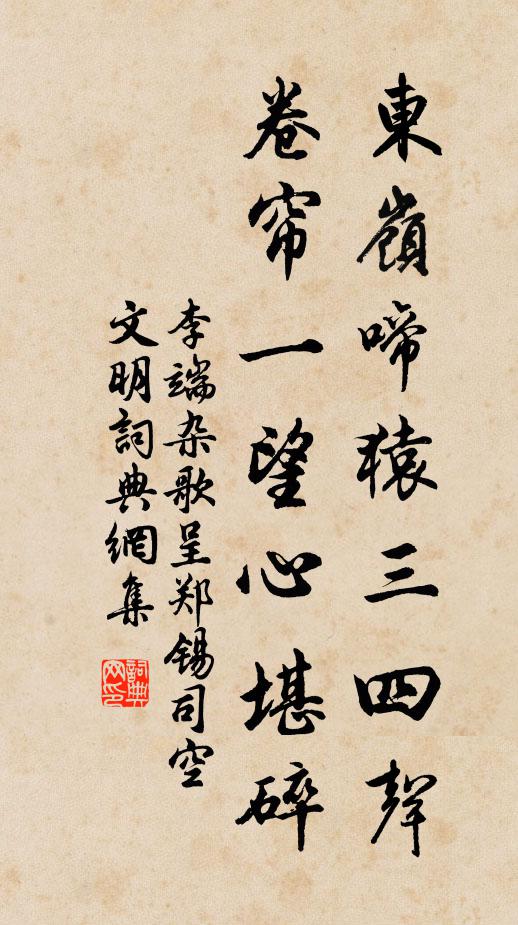 東嶺啼猿三四聲
卷帘一望心堪碎
李端杂歌呈郑锡司空
文明詞典網集
詞典
网印